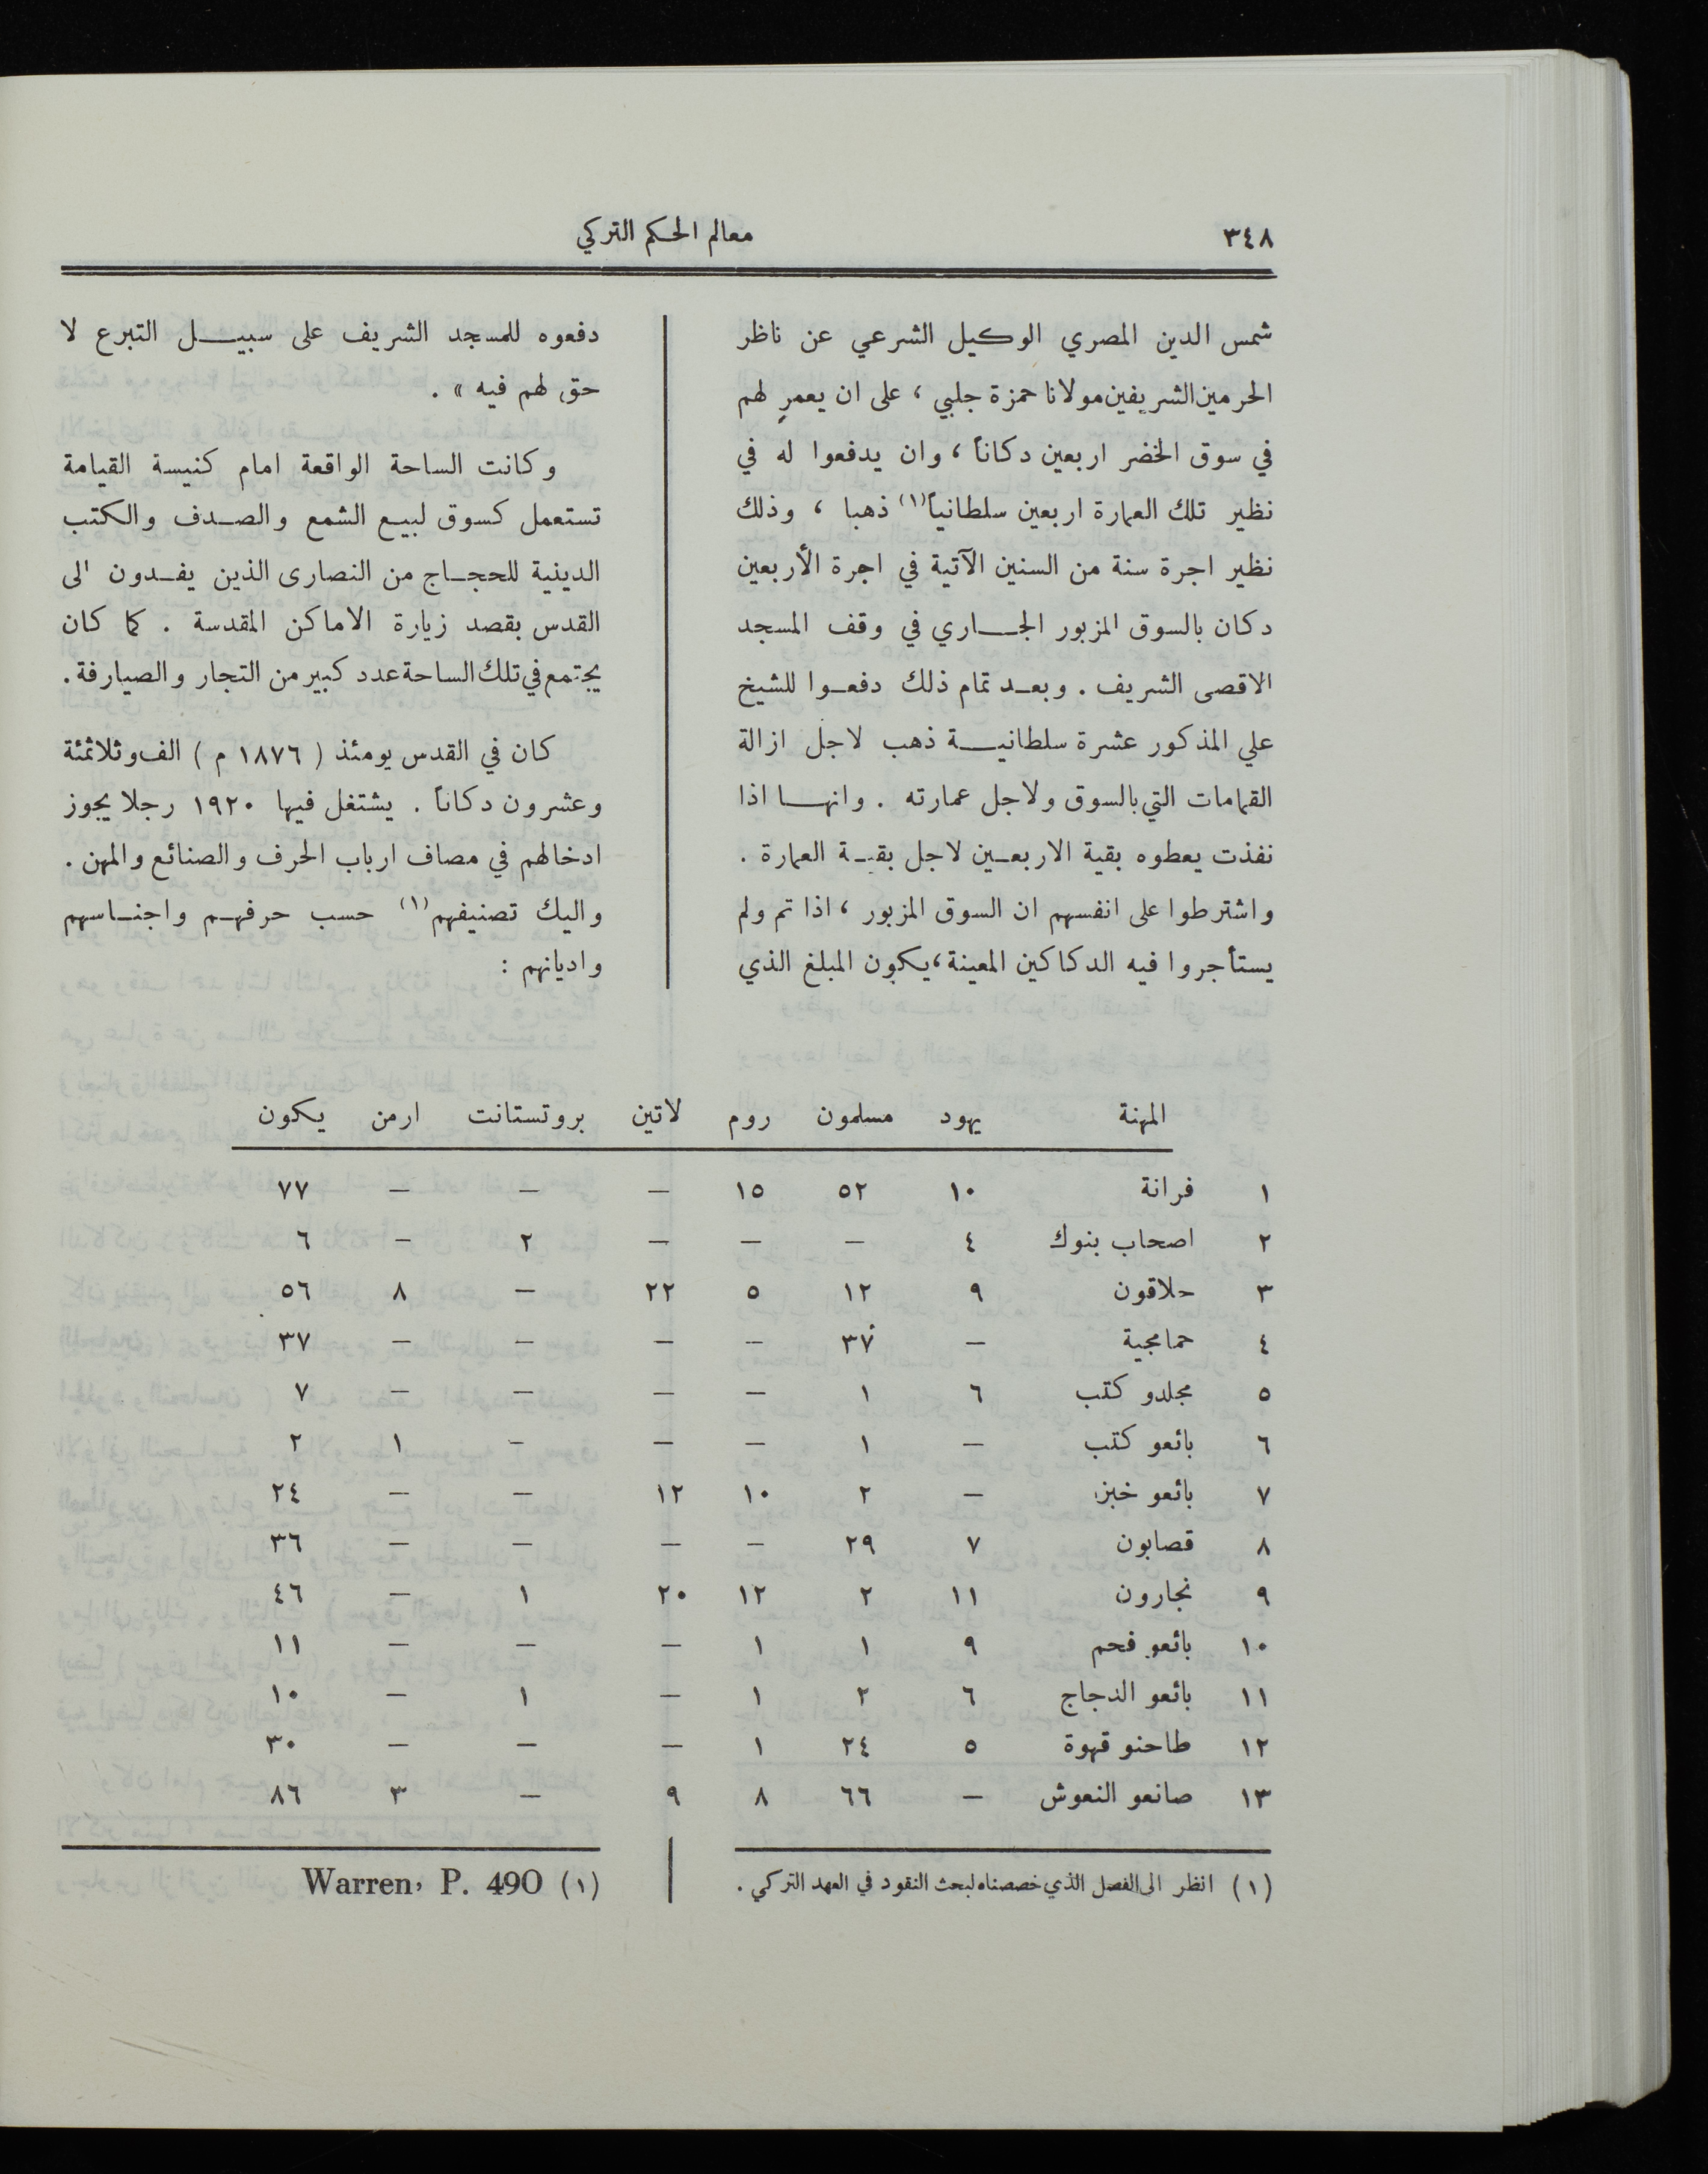 ٣٤٨
معالم الحكم التركي
شمس الدين المصري الوكيل الشرعي عن ناظر
الحرمين الشريفين مولانا حمزة جلبي ، على ان يعمر لهم
في سوق الخضر اربعين دكاناً ، وان يدفعوا له في
نظير تلك العمارة اربعين سلطانياً (١) ذهبا ، وذلك
نظير اجرة سنة من السنين الآتية في اجرة الأربعين
دكان بالسوق المزبور الجاري في وقف المسجد
الاقصى الشريف . وبعد تمام ذلك دفعوا للشيخ
علي المذكور عشرة سلطانية ذهب لاجل ازالة
القمامات التي بالسوق ولاجل عمارته . وانها اذا
نفذت يعطوه بقية الاربعين لاجل بقية العمارة .
واشترطوا على انفسهم ان السوق المزبور ، اذا تم ولم
يستأجروا فيه الدكاكين المعينة ، يكون المبلغ الذي
دفعوه للمسجد الشريف على سبيل التبرع لا
حق لهم فيه » .
وكانت الساحة الواقعة امام كنيسة القيامة
تستعمل كسوق لبيع الشمع والصدف والكتب
الدينية للحجاج من النصارى الذين يفدون الى
القدس بقصد زيارة الاماكن المقدسة . كما كان
يجتمع في تلك الساحة عدد كبير من التجار والصيارفة .
كان في القدس يومئذ ( ١٨٧٦ م ) الف وثلاثمئة
وعشرون دكاناً . يشتغل فيها ١٩٢٠ رجلا يجوز
ادخالهم في مصاف ارباب الحرف والصنائع والمهن .
واليك تصنيفهم (١) حسب حرفهم واجناسهم
واديانهم :
المهنة يهود مسلمون روم لاتين بروتستانت ارمن يكون
١ فرانة ١٠ ٥٢ ١٥ — — — ٧٧
٢ اصحاب بنوك ٤ — — — ٢ — ٦
٣ حلاقون ٩ ١٢ ٥ ٢٢ — ٨ ٥٦
٤ حمامجية — ٣٧ — — — — ٣٧
٥ مجلدو كتب ٦ ١ — — — — ٧
٦ بائعو كتب — ١ — — — ١ ٢
٧ بائعو خبز — ٢ ١٠ ١٢ — — ٢٤
٨ قصابون ٧ ٢٩ — — — — ٣٦
٩ نجارون ١١ ٢ ١٢ ٢٠ ١ — ٤٦
١٠ بائعو فحم ٩ ١ ١ — — — ١١
١١ بائعو الدجاج ٦ ٢ ١ — ١ — ١٠
١٢ طاحنو قهوة ٥ ٢٤ ١ — — — ٣٠
١٣ صانعو النعوش — ٦٦ ٨ ٩ — ٣ ٨٦
(١) انظر الى الفصل الذي خصصناه لبحث النقود في العهد التركي .
(١) Warren, P. 490